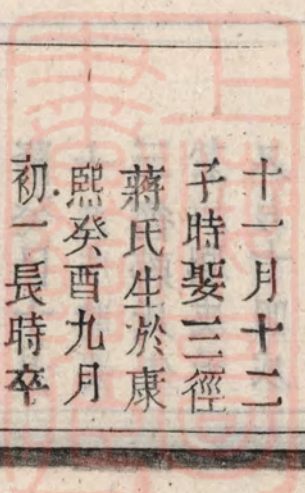 十一月十二
子時娶三徑
蔣氏生於康
熙癸酉九月
初一長時卒